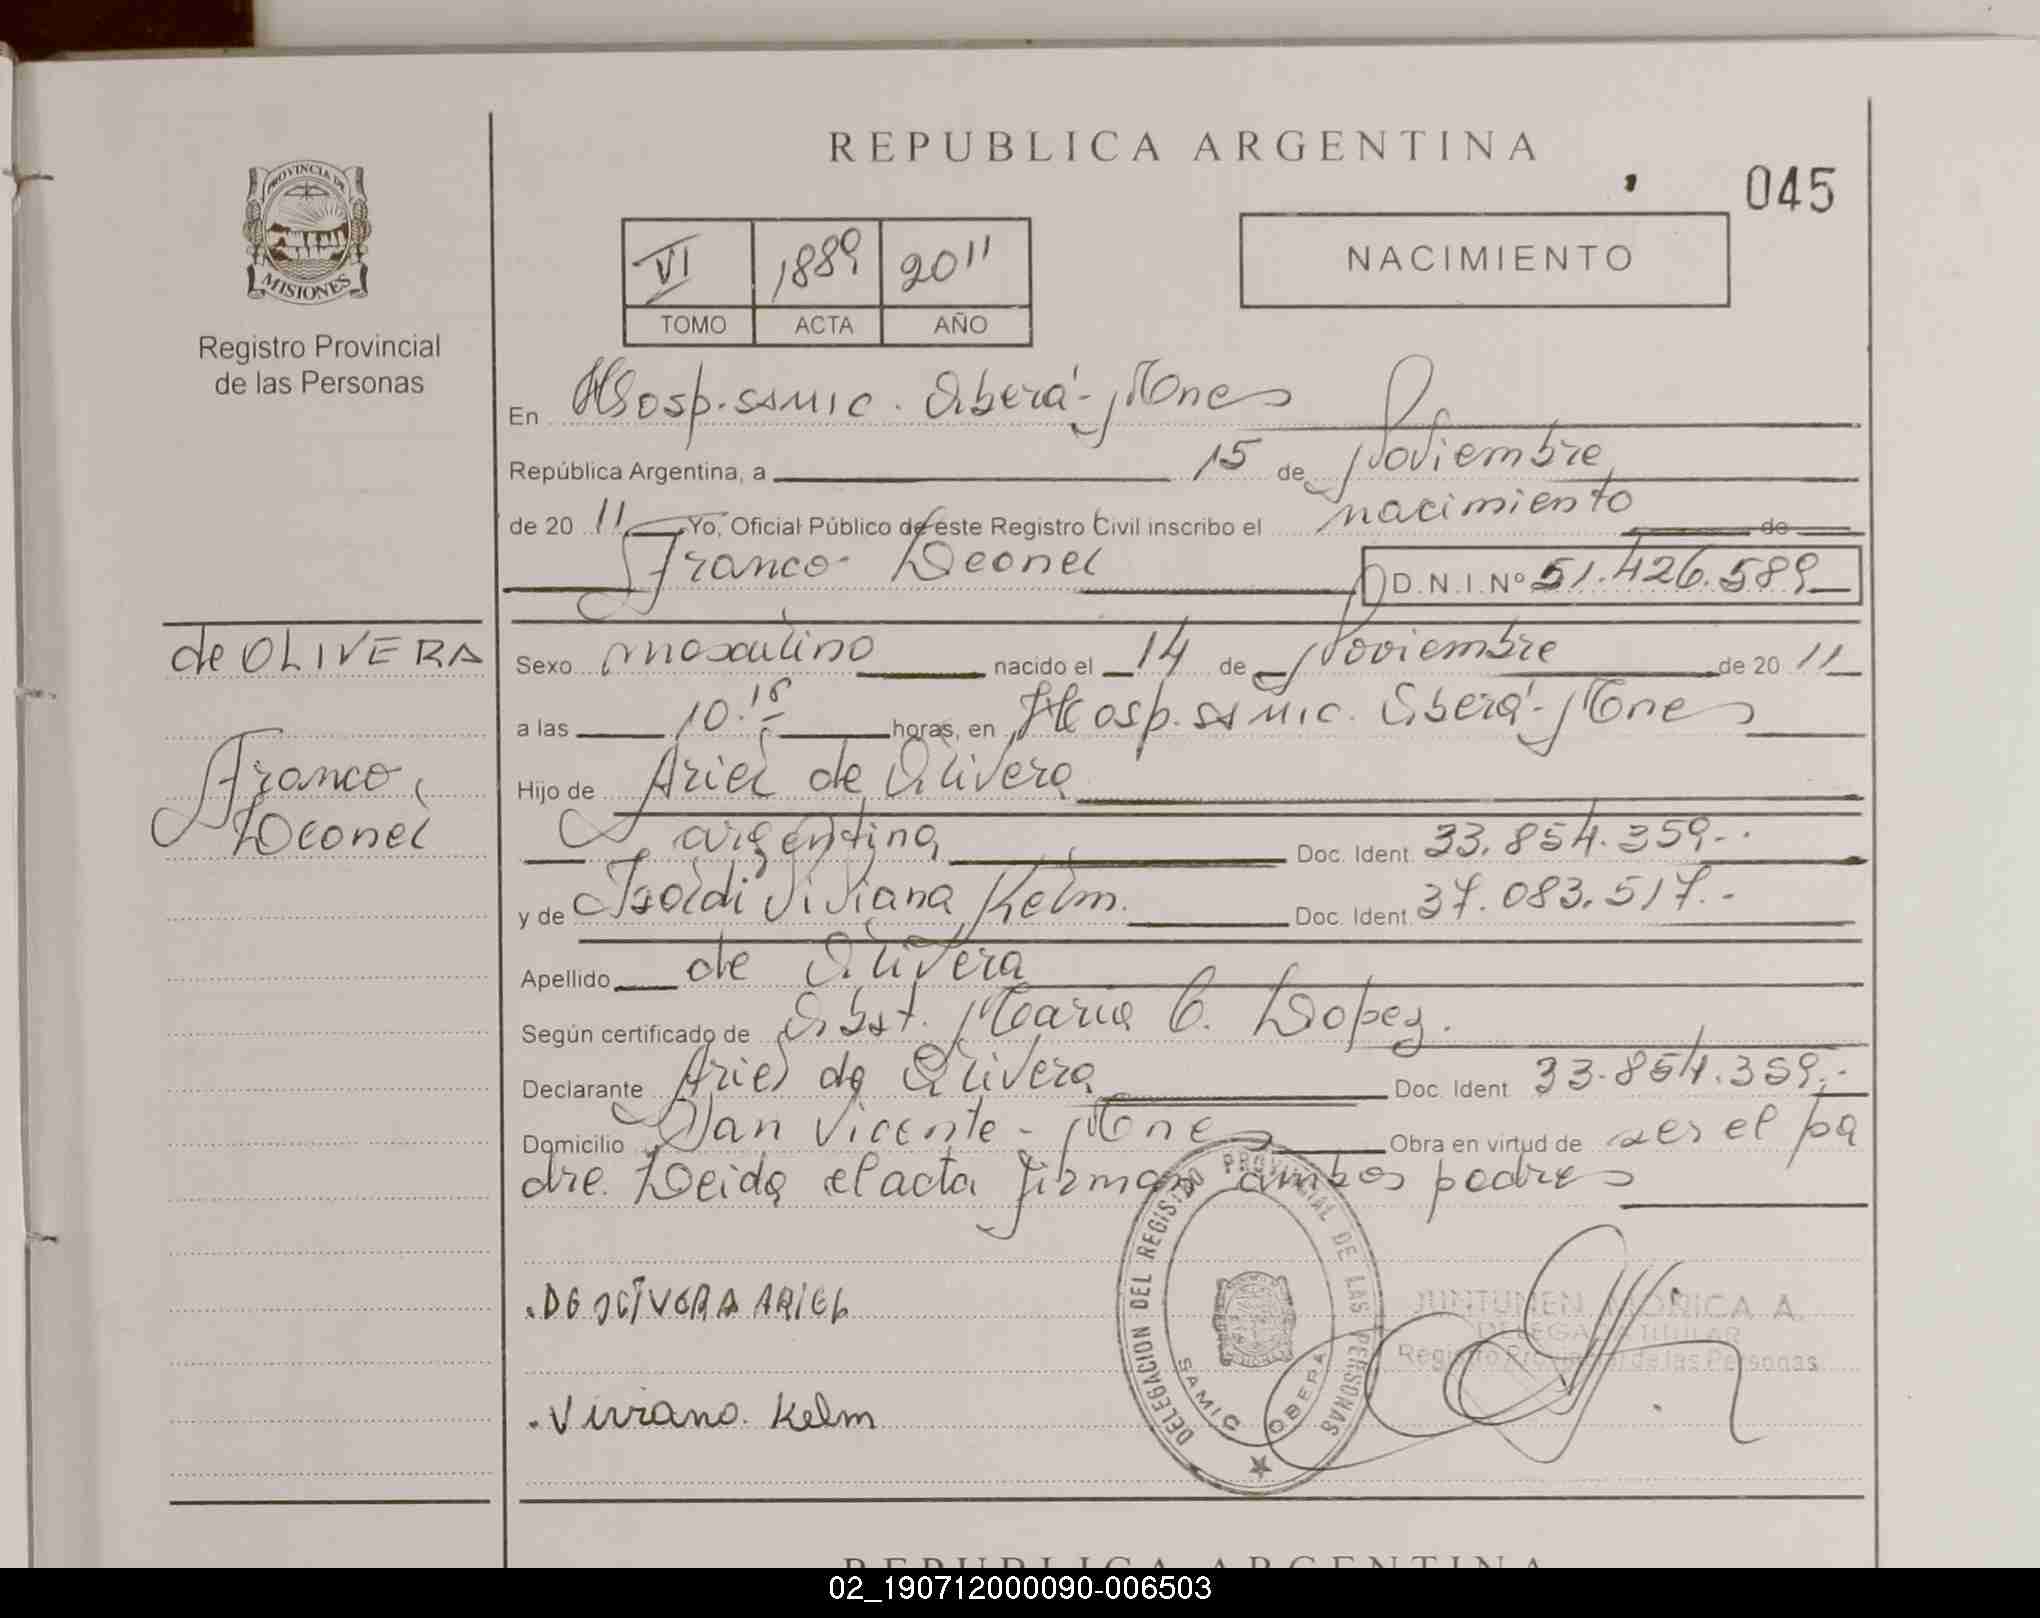 REPUBLICA ARGENTINA
045
PROVINCIA DE
MISIONES
Registro Provincial
de las Personas
VI 1889 2011
TOMO ACTA AÑO
NACIMIENTO
En Hosp. SAMIC. Oberá - Mnes
República Argentina, a 15 de Noviembre
de 20 11 Yo, Oficial Público de este Registro Civil inscribo el nacimiento de
Franco Leonel D.N.I. Nº 51.426.589
de OLIVERA
Franco
Leonel
Sexo masculino nacido el 14 de Noviembre de 20 11
a las 10.15 horas, en Hosp. SAMIC. Oberá - Mnes
Hijo de Ariel de Olivera
argentina Doc. Ident. 33.854.359.-
y de Isoldi Viviana Kelm. Doc. Ident. 37.083.517.-
Apellido de Olivera
Según certificado de Obst. Maria C. Lopez.
Declarante Ariel de Olivera Doc. Ident 33.854.359.-
Domicilio San Vicente - Mnes Obra en virtud de ser el pa
dre. Leida el acta firman ambos padres
DELEGACION DEL REGISTRO PROVINCIAL DE LAS PERSONAS
SAMIC OBERA
.DE OLIVERA ARIEL
JUNTUNEN MONICA A.
DELEGADA TITULAR
Registro Provincial de las Personas
.Viviana. Kelm
REPUBLICA ARGENTINA
02_190712000090-006503